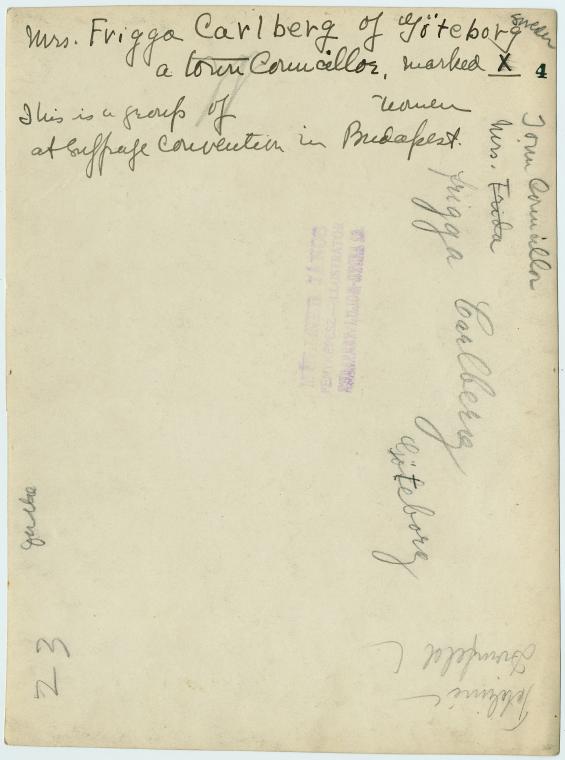 Mrs. Frigga Carlberg of Göteborg Sweden
a town Councillor, marked X 4
This is a group of women
at Suffrage Convention in Budapest.
Town Councillor
Mrs. Frida
Frigga Carlberg
Göteborg
23